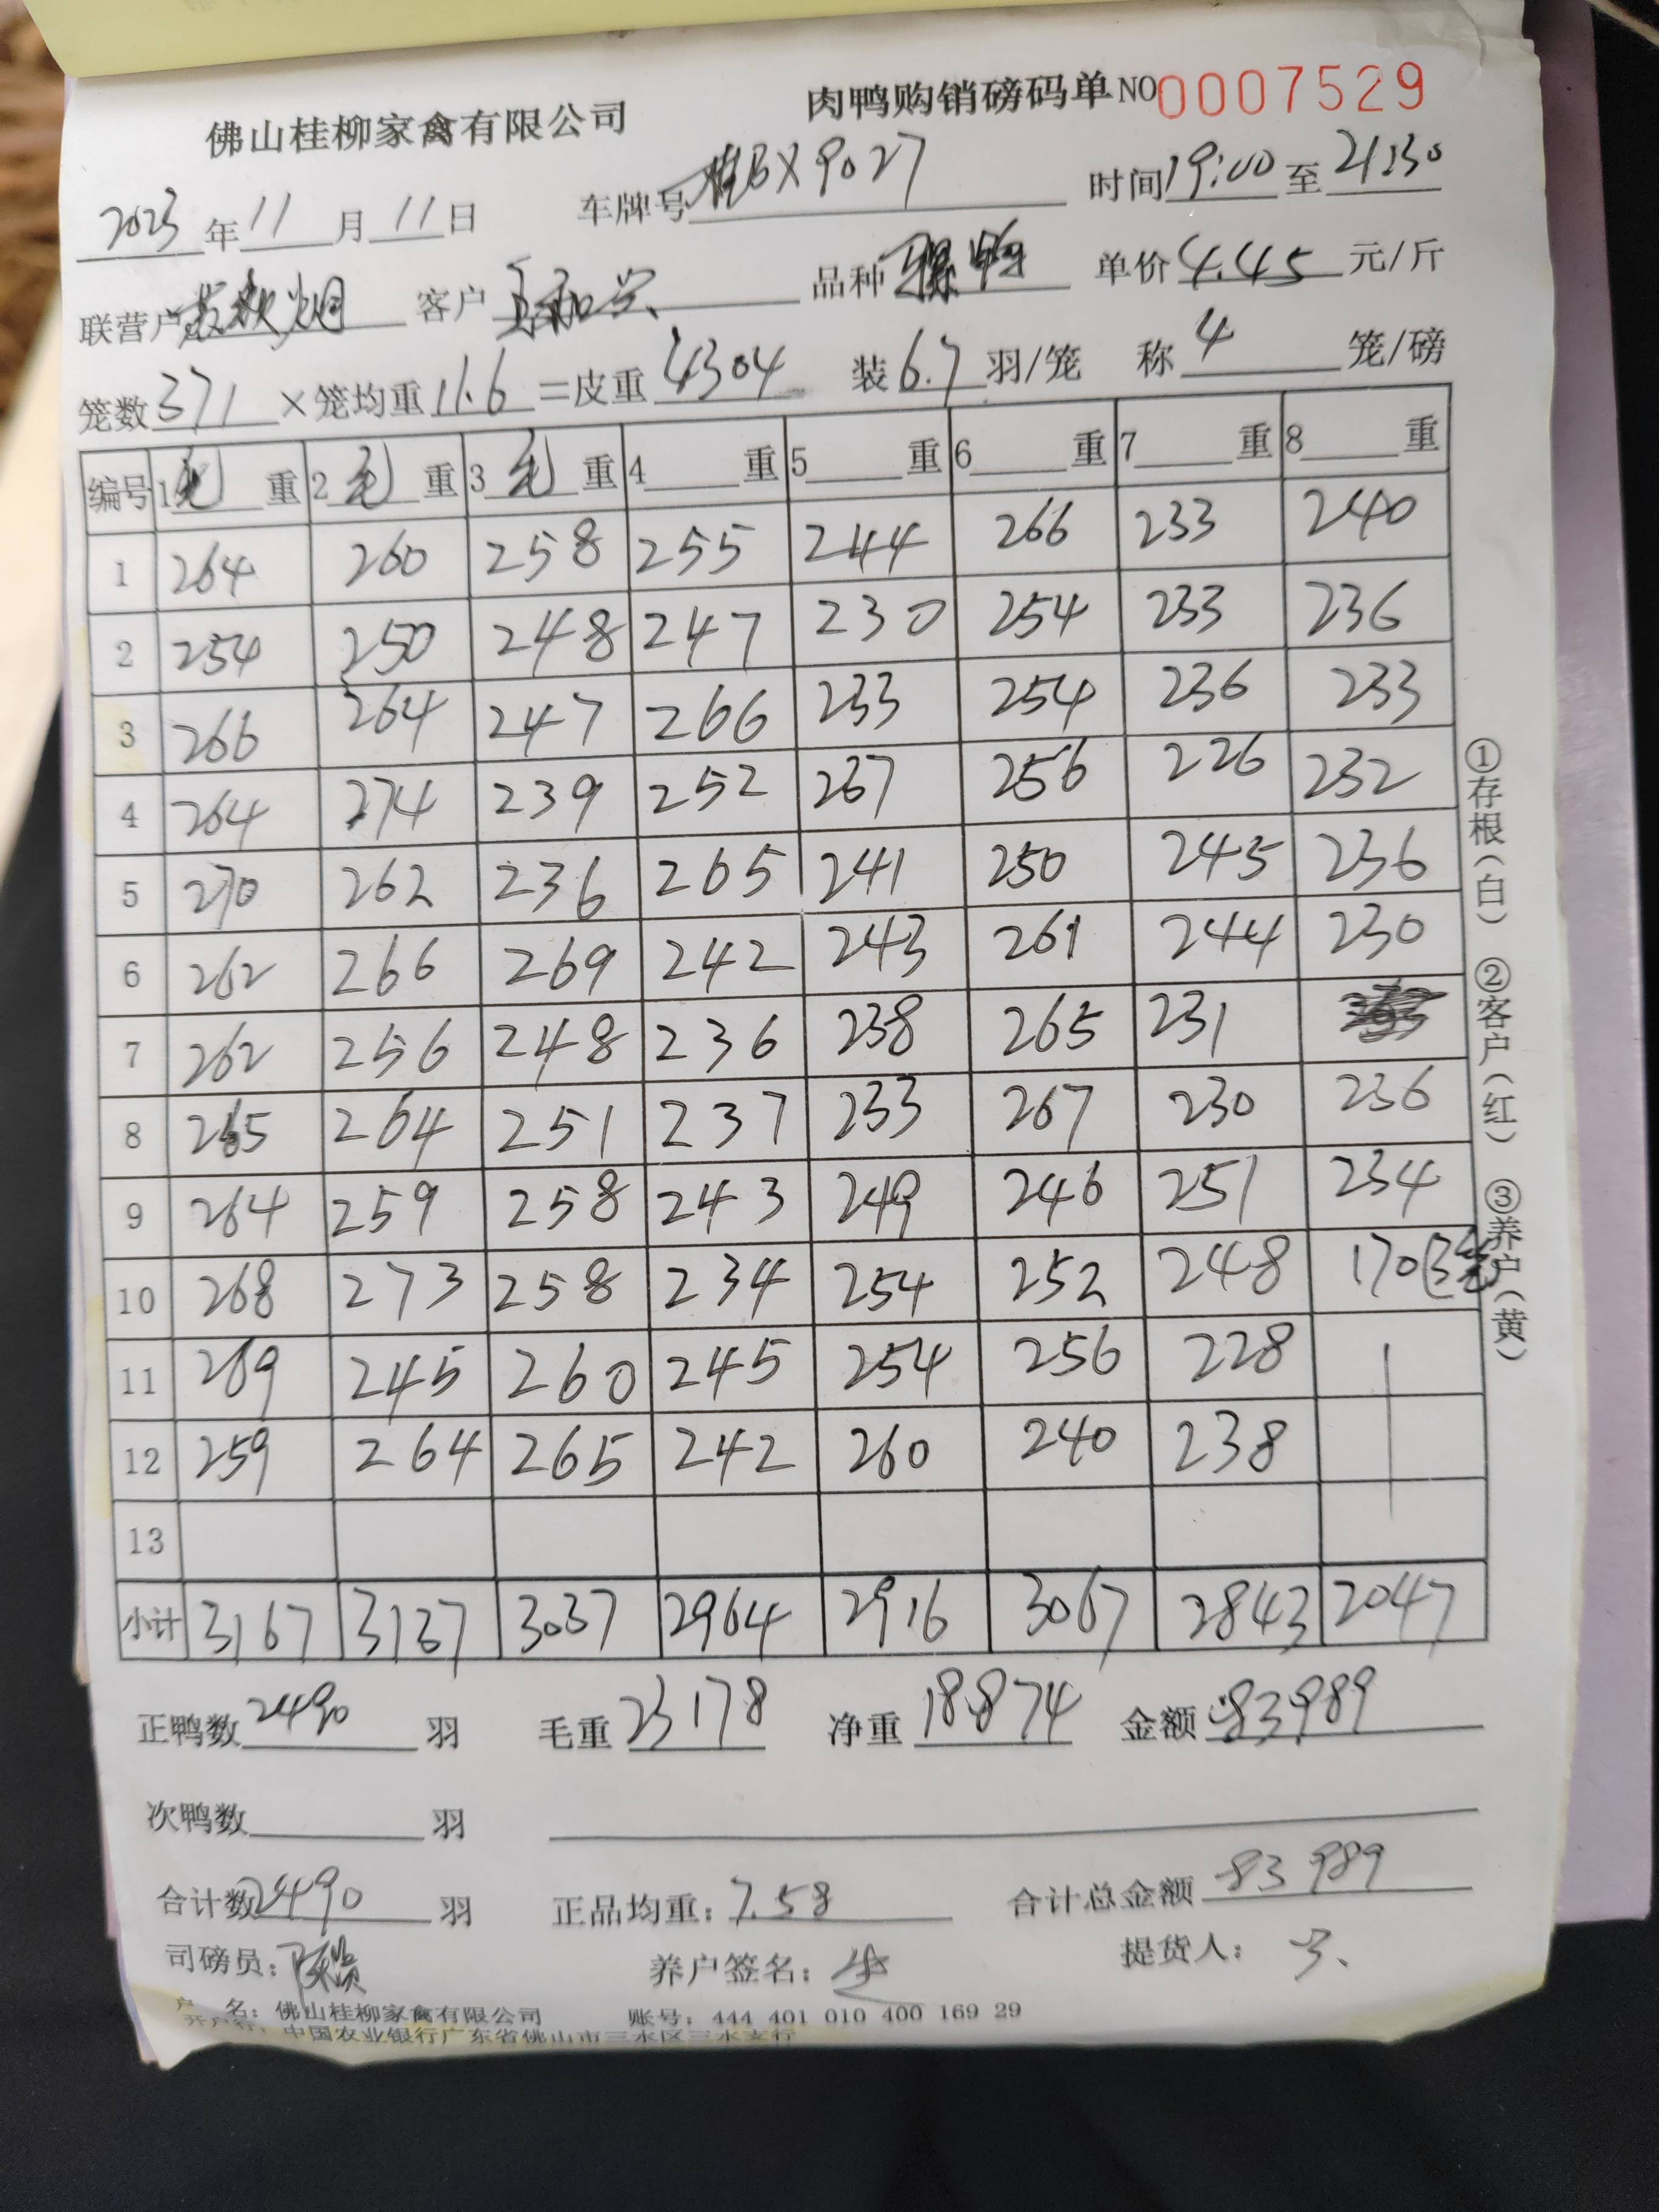 佛山桂柳家禽有限公司 肉鸭购销磅码单 NO 0007529
2023年11月11日 车牌号 X9027 时间19:00至21:30
联营户 客户 王和兴 品种 单价4.45元/斤
笼数371×笼均重11.6=皮重4304 装6.7羽/笼 称4笼/磅
编号 1毛重 2毛重 3毛重 4重 5重 6重 7重 8重
1 264 260 258 255 244 266 233 240
2 254 250 248 247 230 254 233 236
3 266 264 247 266 233 254 236 233
4 264 274 239 252 237 256 226 232
5 270 262 236 265 241 250 245 236
6 262 266 269 242 243 261 244 230
7 262 256 248 236 238 265 231
8 265 264 251 237 233 267 230 236
9 264 259 258 243 249 246 251 234
10 268 273 258 234 254 252 248 170(3笼
11 269 245 260 245 254 256 228
12 259 264 265 242 260 240 238
13
小计 3167 3137 3037 2964 2916 3067 2843 2047
①存根(白) ②客户(红) ③养户(黄)
正鸭数2490羽 毛重23178 净重18874 金额83989
次鸭数 羽
合计数2490羽 正品均重:7.58 合计总金额83989
司磅员: 养户签名: 提货人:
户 名:佛山桂柳家禽有限公司 账号:444 401 010 400 169 29
开户行:中国农业银行广东省佛山市三水区三水支行